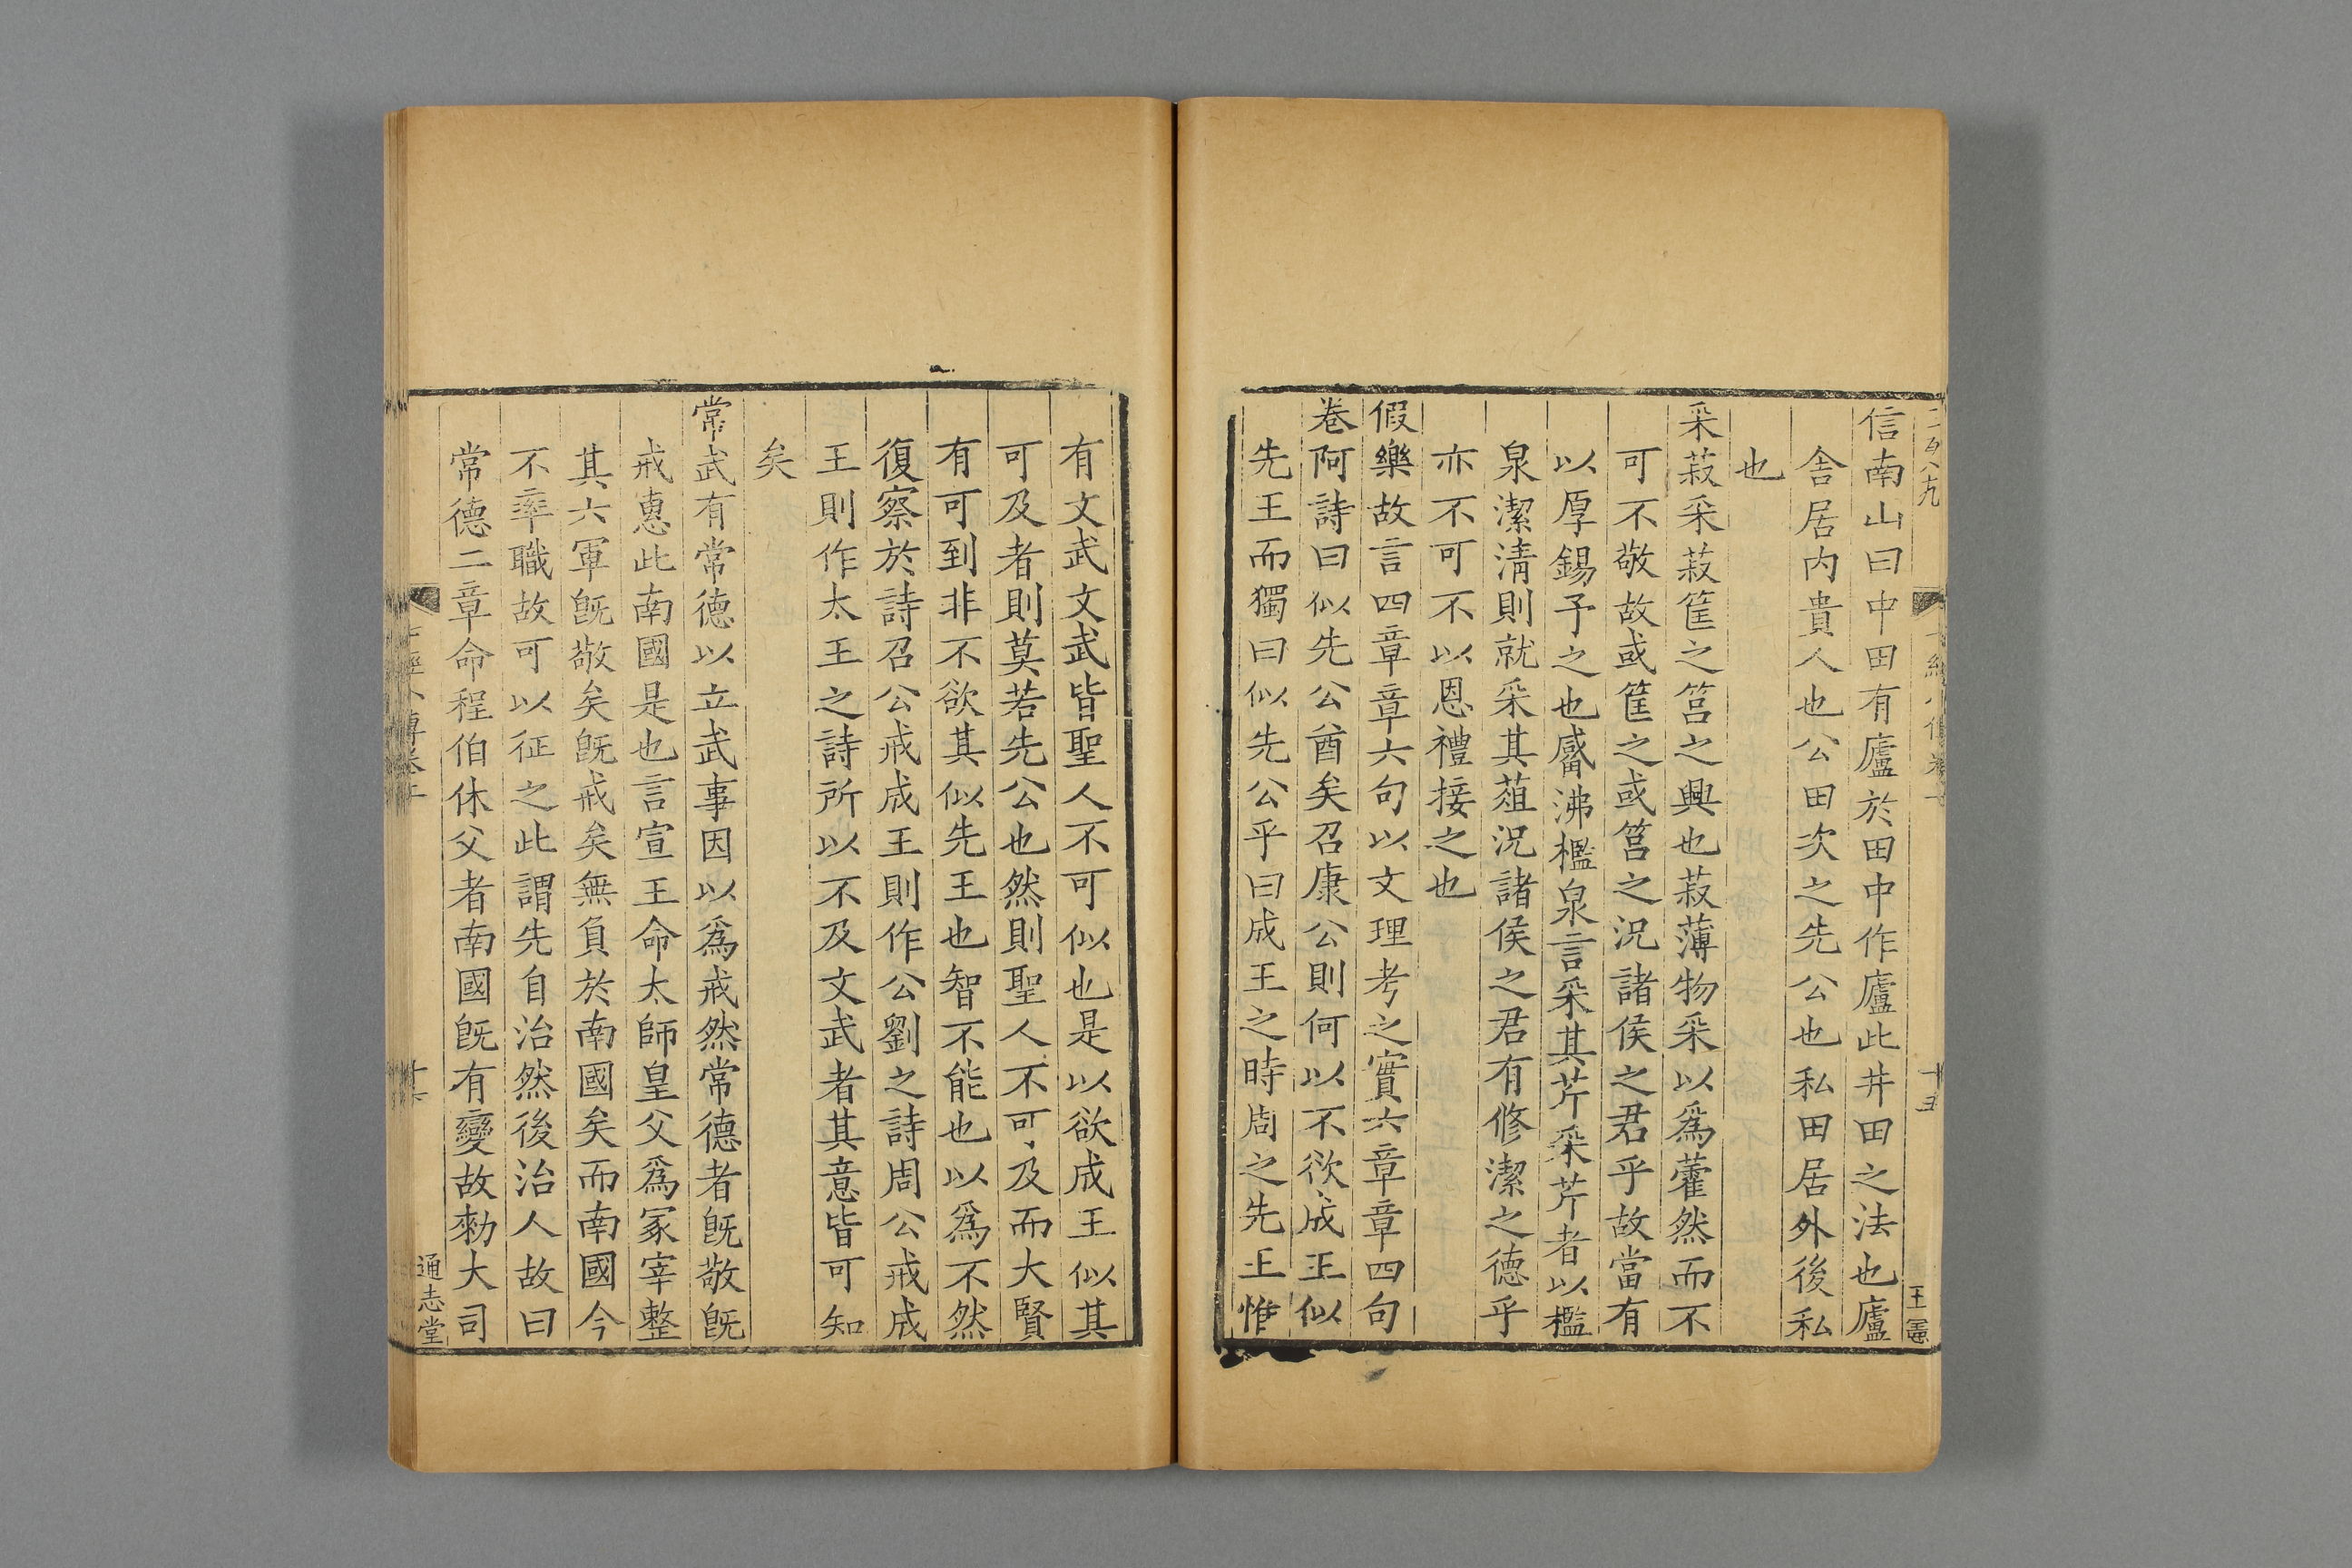 信南山曰中田有廬於田中作廬此井田之法也廬
舍居内貴人也公田次之先公也私田居外後私
也
采菽采菽筐之筥之興也菽薄物采以爲藿然而不
可不敬故或筐之或筥之況諸侯之君乎故當有
以厚錫予之也觱沸檻泉言采其芹采芹者以檻
泉潔清則就采其葅況諸侯之君有修潔之德乎
亦不可不以恩禮接之也
假樂故言四章章六句以文理考之實六章章四句
卷阿詩曰似先公酋矣召康公則何以不欲成王似
先王而獨曰似先公乎曰成王之時周之先王惟
有文武文武皆聖人不可似也是以欲成王似其
可及者則莫若先公也然則聖人不可及而大賢
有可到非不欲其似先王也智不能也以爲不然
復察於詩召公戒成王則作公劉之詩周公戒成
王則作太王之詩所以不及文武者其意皆可知
矣
常武有常德以立武事因以爲戒然常德者旣敬旣
戒惠此南國是也言宣王命太師皇父爲冢宰整
其六軍旣敬矣旣戒矣無負於南國矣而南國今
不率職故可以征之此謂先自治然後治人故曰
常德二章命程伯休父者南國旣有變故勑大司
通志堂